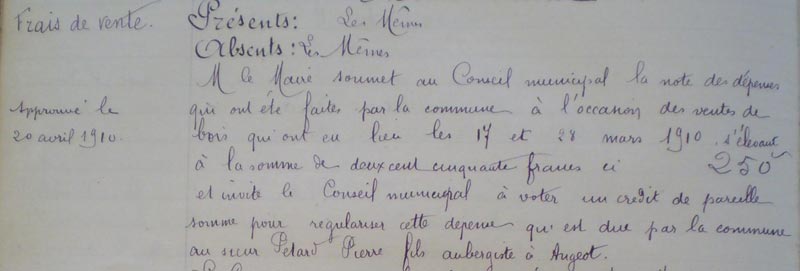 Frais de vente.
Présents: Les Mêmes
Absents: Les Mêmes
M le Maire soumet au Conseil municipal la note des dépenses
Approuvé le
20 avril 1910.
qui ont été faites par la commune à l'occasion des ventes de
bois qui ont eu lieu les 17 et 28 mars 1910, s'élevant
à la somme de deux cent cinquante francs ci 250
et invite le Conseil municipal à voter un crédit de pareille
somme pour régulariser cette dépense qu'est due par la commune
au sieur Pétard Pierre fils aubergiste à Angeot.